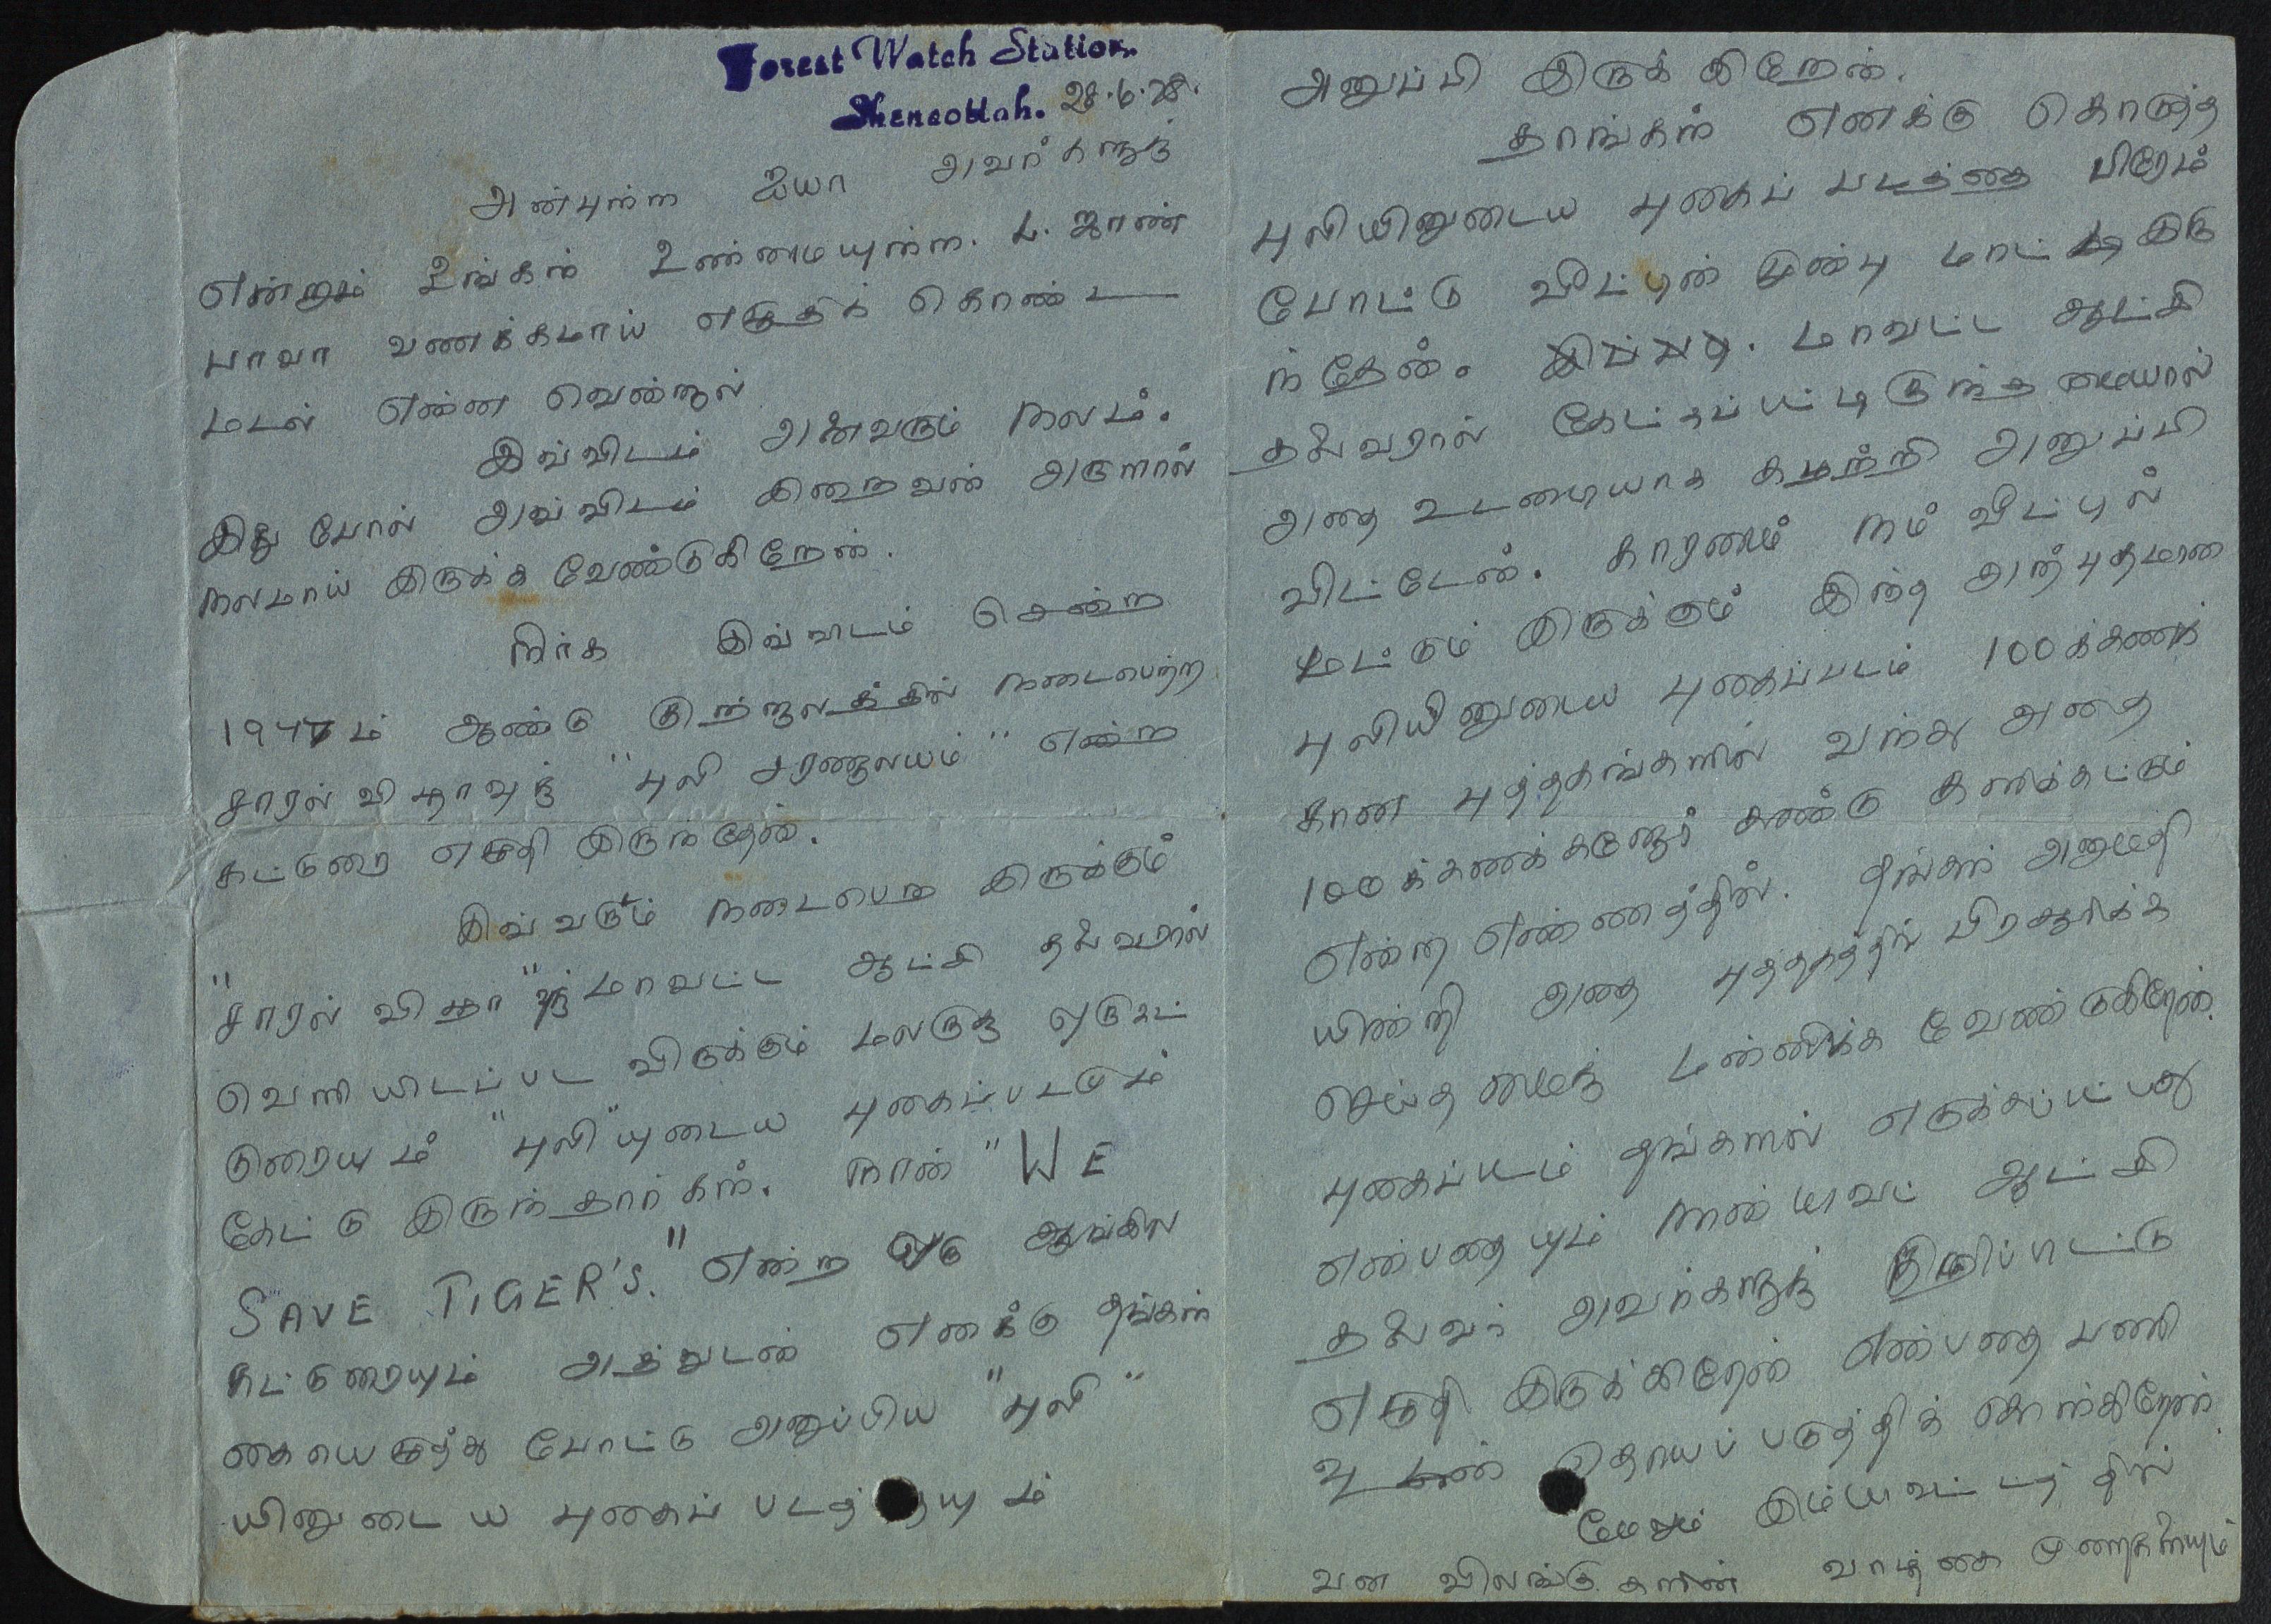 Forest Watch Station.
Shencottah. 28.6.78.
அன்புள்ள ஐயா அவர்களுக்கு
என்றும் உங்கள் உண்மையுள்ள. L. ஜாண்
பாவா வணக்கமாய் எழுதிக் கொண்ட
மடல் என்ன வென்றால்
இவ்விடம் அனைவரும் நலம்.
இது போல் அவ்விடம் இறைவன் அருளால்
நலமாய் இருக்க வேண்டுகிறேன்.
நிற்க இவ்விடம் சென்ற
1977ம் ஆண்டு குற்றாலத்தில் நடைபெற்ற
சாரல் விழாவுக்கு "புலி சரணாலயம்" என்ற
கட்டுரை எழுதி இருந்தேன்.
இவ்வருடமும் நடைபெற இருக்கும்
"சாரல் விழா"வுக்கு மாவட்ட ஆட்சி தலைவரால்
வெளியிடப்பட விருக்கும் மலருக்கு ஒரு கட்
டுரையும் "புலி"யுடைய புகைப்படமும்
கேட்டு இருந்தார்கள். நான் "WE
SAVE TIGER'S." என்ற ஒரு ஆங்கில
கட்டுரையும் அத்துடன் எனக்கு தங்கள்
கையெழுத்து போட்டு அனுப்பிய "புலி"
யினுடைய புகைப் படத்தையும்
அனுப்பி இருக்கிறேன்.
தாங்கள் எனக்கு கொடுத்த
புலியினுடைய புகைப் படத்தை பிரேம்
போட்டு வீட்டின் முன்பு மாட்டி இரு
ந்தேன். மாவட்ட ஆட்சி
தலைவரால் கேட்கப்பட்டிருந்தமையால்
அதை உடனடியாக கழற்றி அனுப்பி
விட்டேன். காரணம் நம் வீட்டில்
மட்டும் இருக்கும் இந்த அற்புதமான
புலியினுடைய புகைப்படம் 100க்கணக்
கான புத்தகங்களில் வந்து அதை
100க்கணக்கானோர் கண்டு களிக்கட்டும்
என்ற எண்ணத்தில். தங்கள் அனுமதி
யின்றி அதை புத்தகத்தில் பிரசூரிக்க
செய்தமைக்கு மன்னிக்க வேண்டுகிறேன்.
புகைப்படம் தங்களால் எடுக்கப்பட்டது
என்பதையும் நான் மாவட்ட ஆட்சி
தலைவர் அவர்களுக்கு குறிப்பிட்டு
எழுதி இருக்கிறேன் என்பதை பணி
வுடன் தெரியப் படுத்திக் கொள்கிறேன்.
மேலும் இம்மாவட்டத்தில்
வன விலங்குகளின் வாழ்க்கை முறைகளையும்